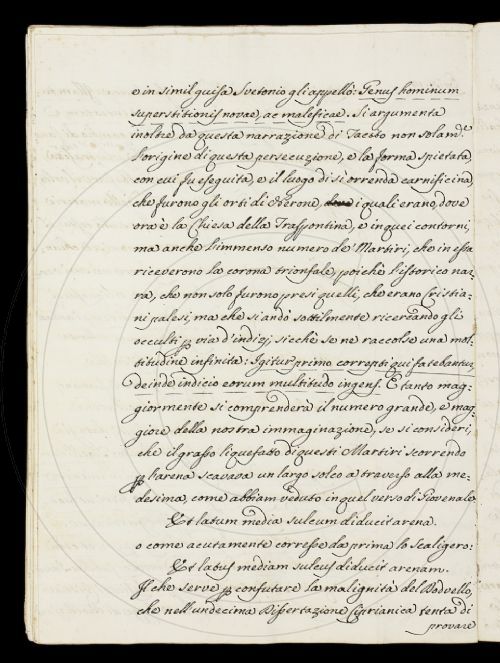 e in simil guisa Svetonio gli appellò: Genus hominum
superstitionis novae, ac maleficae. Si argumenta
inoltre da questa narrazione di Tacito non solamte.
l'origine di questa persecuzione, e la forma spietata
con cui fu eseguita, e il luogo di sì orrenda carnificina,
che furono gli orti di Nerone, i quali erano, dove
ora è la Chiesa della Traspontina, e in quei contorni,
ma anche l'immenso numero de' Martiri, che in essa
riceverono la corona trionfale, poichè l'istorico nar=
ra, che non solo furono presi quelli, che erano Cristia=
ni palesi, ma che si andò sottilmente ricercando gli
occulti p via d'indizj, sicchè se ne raccolse una mol=
titudine infinita: Igitur primo correpti qui fatebantur,
deinde indicio eorum multitudo ingens. E tanto mag=
giormente si comprenderà il numero grande, e mag=
giore della nostra immaginazione, se si consideri,
che il grasso liquefatto di questi Martiri scorrendo
p l'arena scavava un largo solco a traverso alla me=
desima, come abbiam veduto in quel verso di Giovenale
Et latum media sulcum diducit arena.
o come acutamente corresse da prima lo Scaligero:
Et latus mediam sulcus diducit arenam.
Il che serve p confutare la malignità del Dodvello,
che nell'undecima Dissertazione Ciprianica tenta di
provare